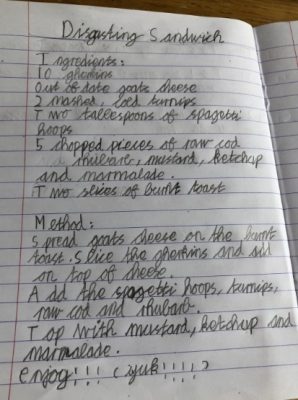 Disgusting Sandwich
Ingredients:
10 gherkins
Out of date goats cheese
2 mashed, cold turnips
Two tablespoons of spagetti
hoops
5 chopped pieces of raw cod
rhubarb, mustard, ketchup
and marmalade.
Two slices of burnt toast
Method:
Spread goats cheese on the burnt
toast. Slice the gherkins and
on top of cheese.
Add the spagetti hoops, turnips,
raw cod and rhubarb.
Top with mustard, ketchup and
marmalade.
enjoy!!! (yuk!!!!)